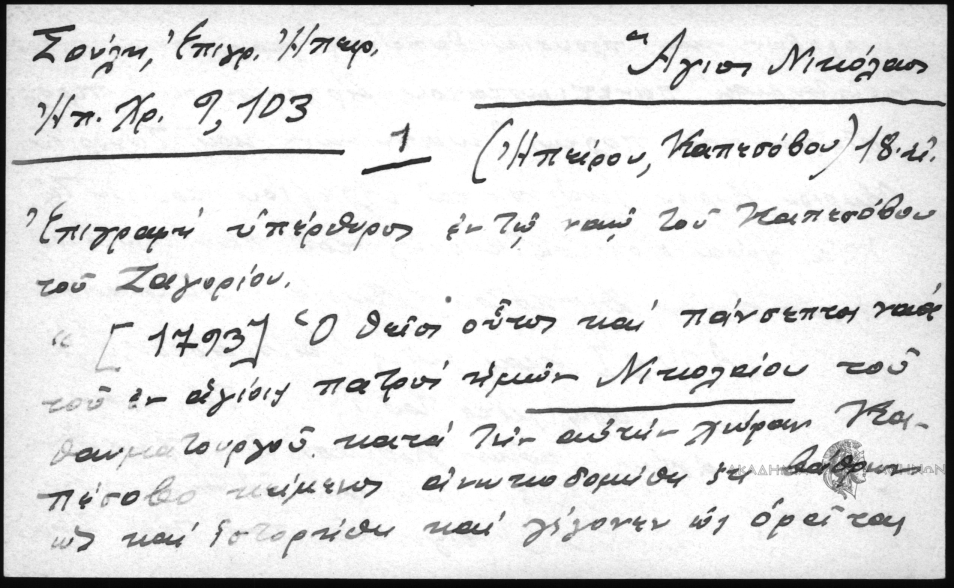 Σούλη, Ἐπιγρ. Ἠπειρ.
Ἅγιος Νικόλαος
Ἠπ. Χρ. 9, 103
1
(Ἠπείρου, Καπεσόβου) 18. αἰ.
Ἐπιγραφὴ ὑπέρθυρος ἐν τῷ ναῷ τοῦ Καπεσόβου
τοῦ Ζαγορίου.
“ [1793] Ὁ θεῖος οὗτος καὶ πάνσεπτος ναὸς
τοῦ ἐν ἁγίοις πατρὸς ἡμῶν Νικολαίου τοῦ
θαυματουργοῦ κατὰ τὴν αὐτὴν χώραν Κα-
πέσοβο κείμενος ἀνωκοδομήθη ἐκ βάθρων
ὡς καὶ ἱστορήθη καὶ γέγονεν ὡς ὁρᾶται